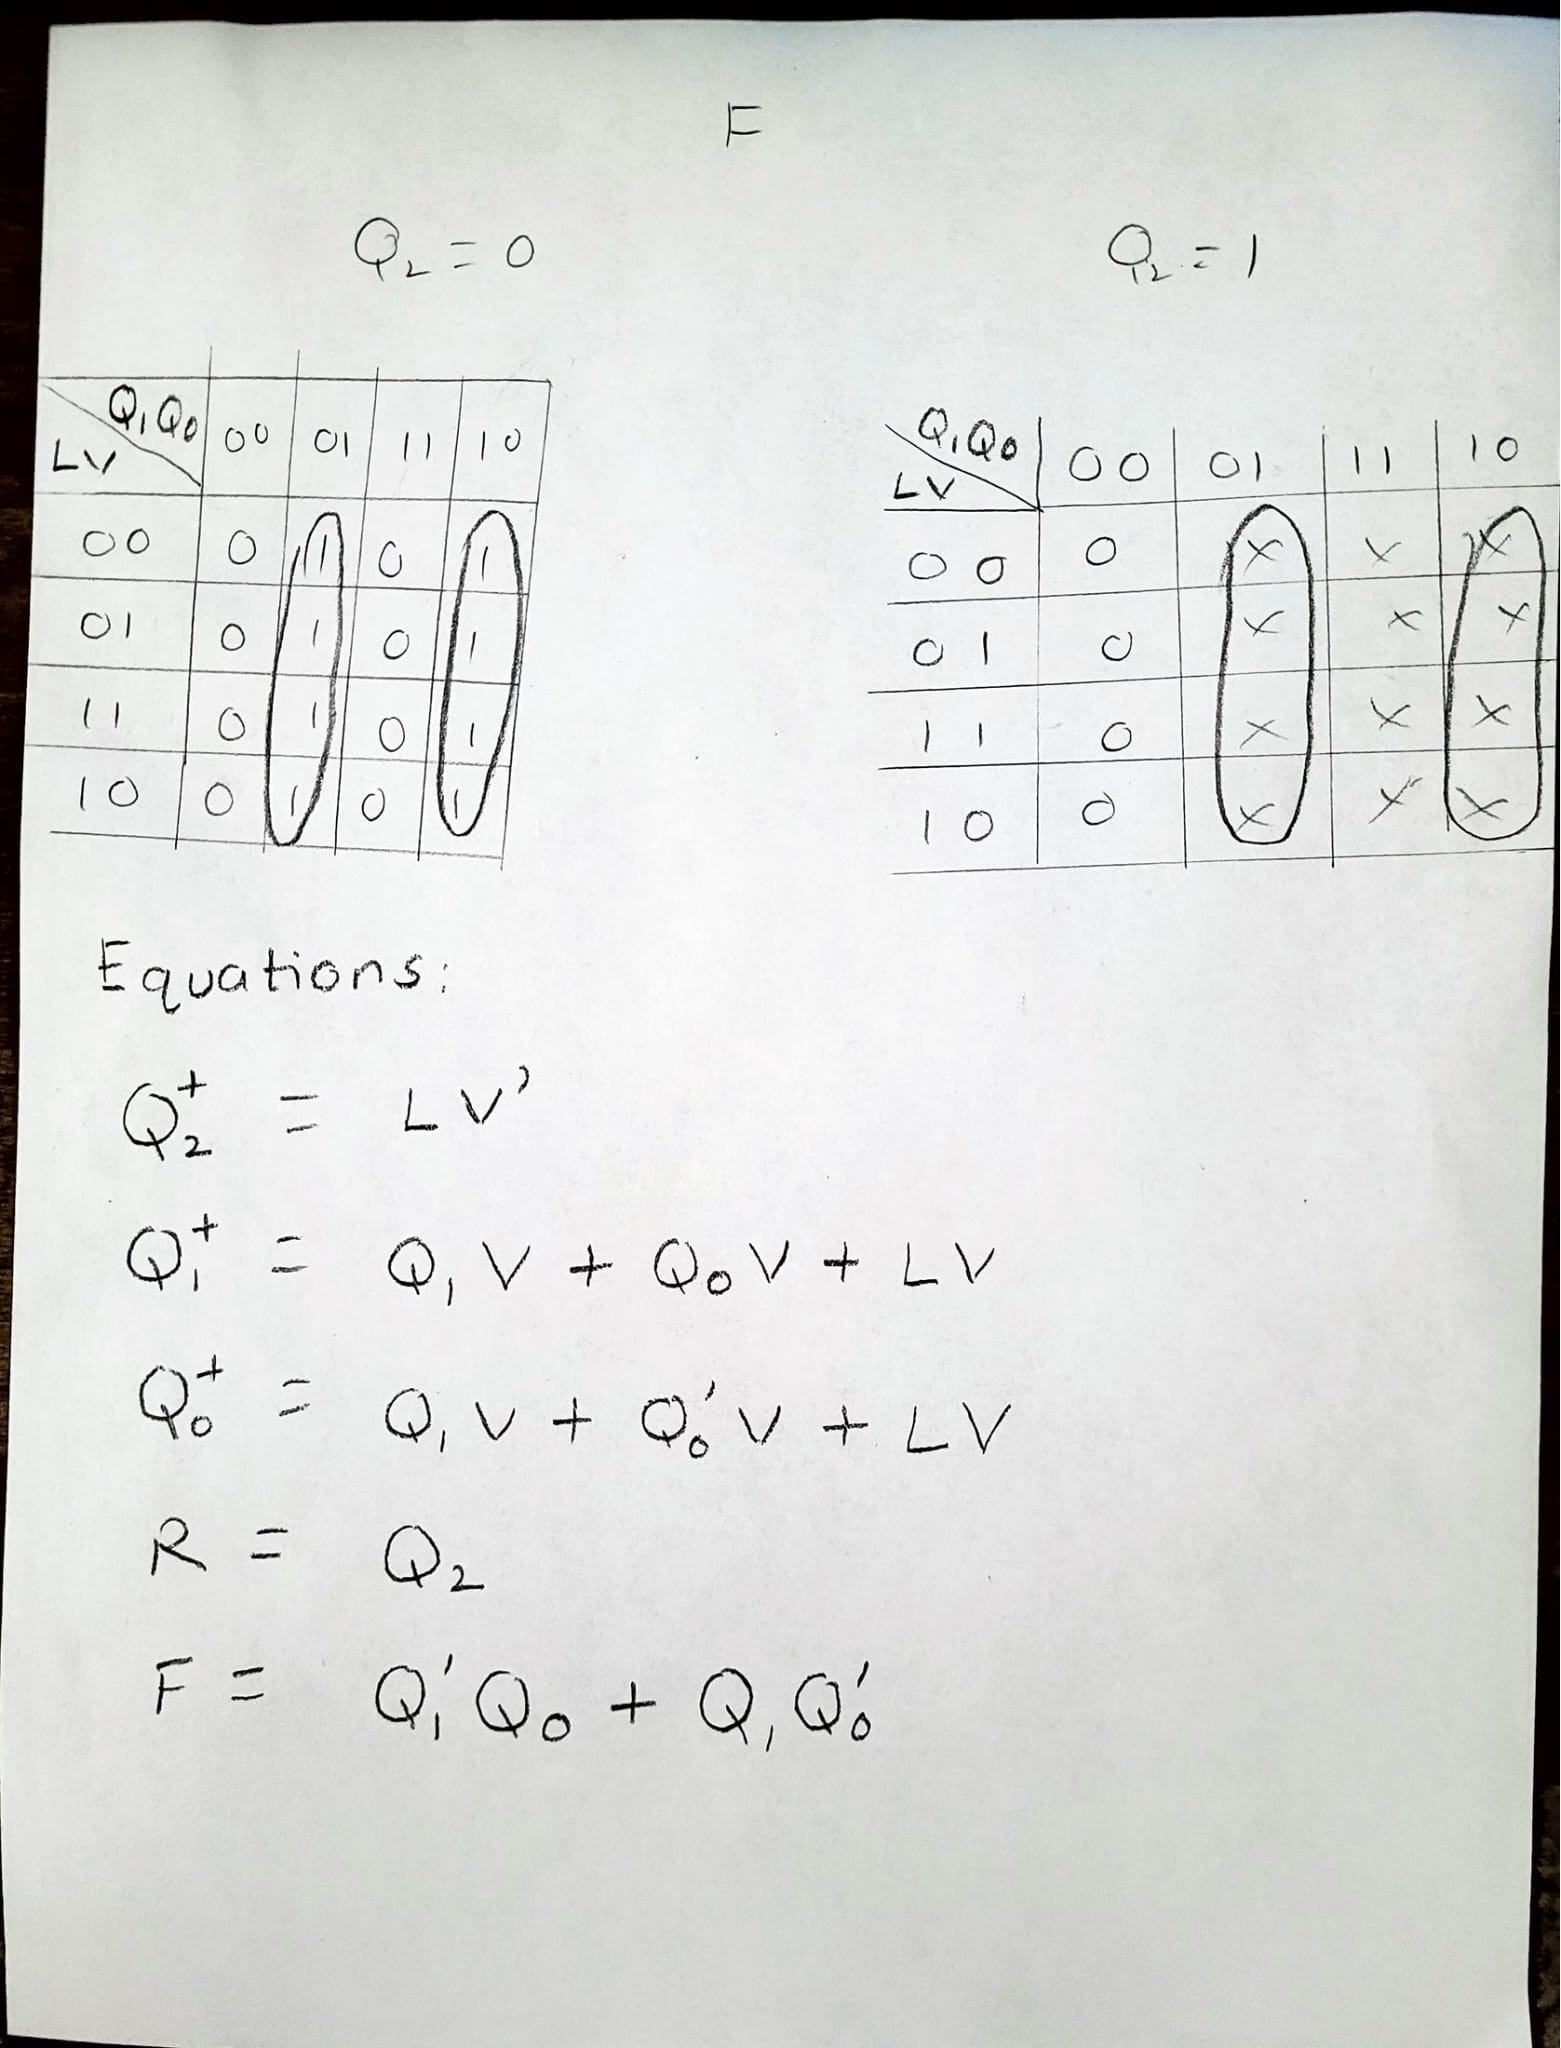 F
Q₂ = 0
Q₂ = 1
Q₁Q₀ 00 01 11 10
LV
00 0 1 0 1
01 0 1 0 1
11 0 1 0 1
10 0 1 0 1
Q₁Q₀ 00 01 11 10
LV
00 0 X X X
01 0 X X X
11 0 X X X
10 0 X X X
Equations:
Q₂⁺ = LV'
Q₁⁺ = Q₁V + Q₀V + LV
Q₀⁺ = Q₁V + Q₀'V + LV
R = Q₂
F = Q₁'Q₀ + Q₁Q₀'